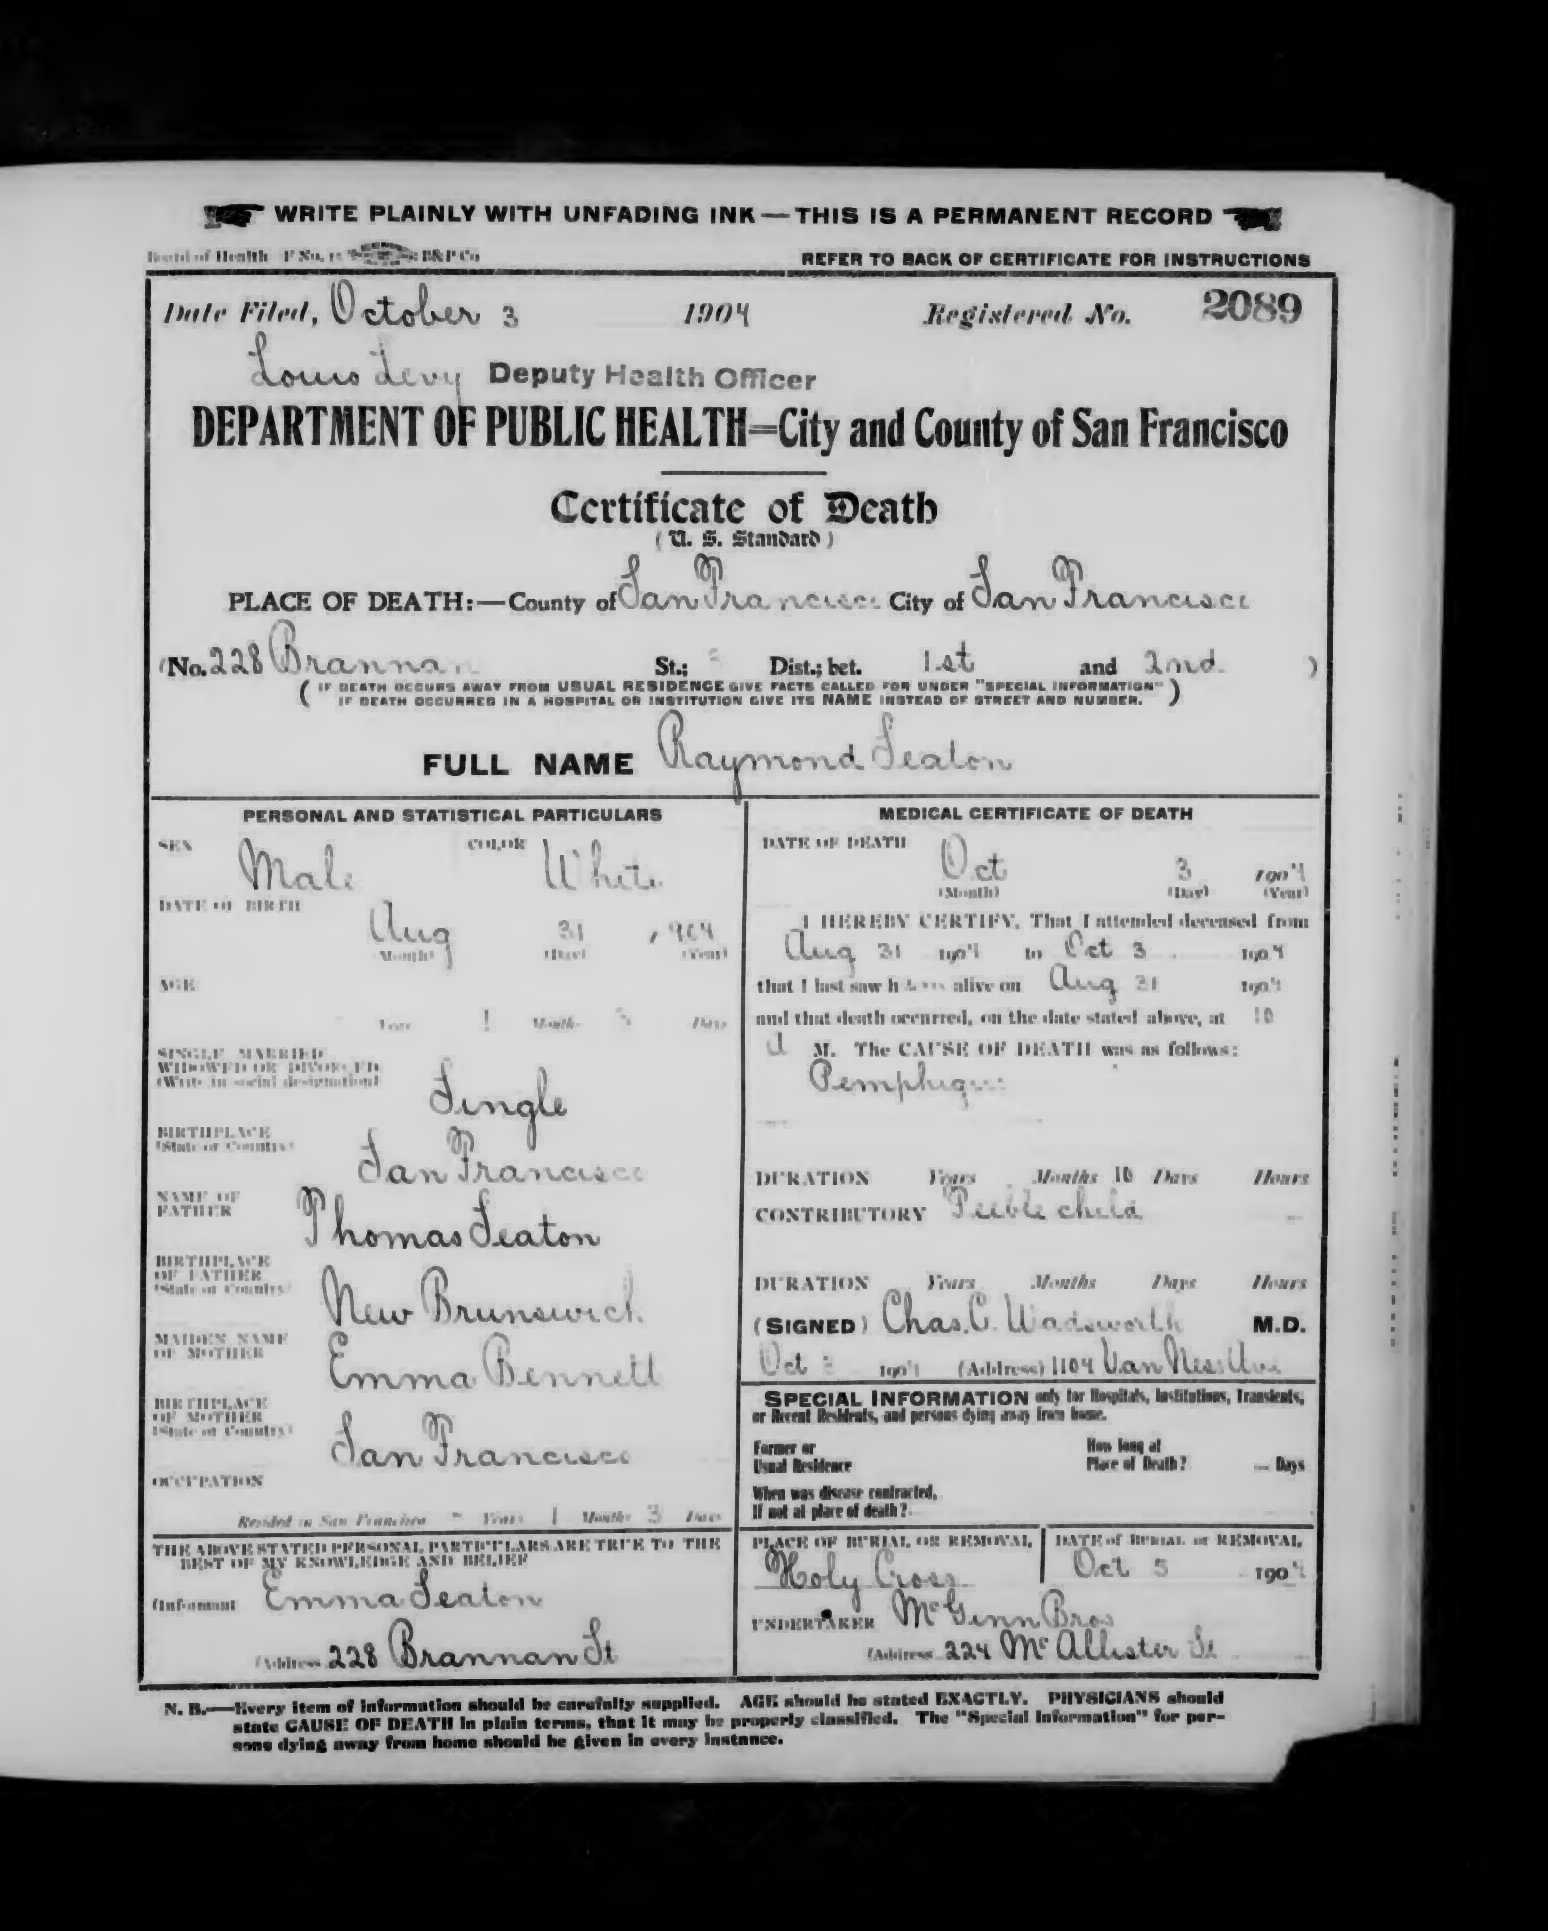 WRITE PLAINLY WITH UNFADING INK—THIS IS A PERMANENT RECORD
Board of Health F No. B&P Co
REFER TO BACK OF CERTIFICATE FOR INSTRUCTIONS
Date Filed, October 3 1904 Registered No. 2089
Louis Levy Deputy Health Officer
DEPARTMENT OF PUBLIC HEALTH=City and County of San Francisco
Certificate of Death
(U. S. Standard)
PLACE OF DEATH:—County of San Francisco City of San Francisco
(No. 228 Brannan St.; Dist.; bet. 1st and 2nd )
( IF DEATH OCCURS AWAY FROM USUAL RESIDENCE GIVE FACTS CALLED FOR UNDER "SPECIAL INFORMATION" )
IF DEATH OCCURRED IN A HOSPITAL OR INSTITUTION GIVE ITS NAME INSTEAD OF STREET AND NUMBER.
FULL NAME Raymond Seaton
PERSONAL AND STATISTICAL PARTICULARS
SEX Male COLOR White
DATE OF BIRTH
Aug 31 1904
(Month) (Day) (Year)
AGE
Years 1 Months 3 Days
SINGLE MARRIED
WIDOWED OR DIVORCED
(Write in social designation)
Single
BIRTHPLACE
(State or Country)
San Francisco
NAME OF
FATHER
Thomas Seaton
BIRTHPLACE
OF FATHER
(State or Country)
New Brunswick
MAIDEN NAME
OF MOTHER
Emma Bennett
BIRTHPLACE
OF MOTHER
(State or Country)
San Francisco
OCCUPATION
Resided in San Francisco - Years 1 Months 3 Days
THE ABOVE STATED PERSONAL PARTICULARS ARE TRUE TO THE
BEST OF MY KNOWLEDGE AND BELIEF
(Informant Emma Seaton
(Address 228 Brannan St
MEDICAL CERTIFICATE OF DEATH
DATE OF DEATH
Oct 3 1904
(Month) (Day) (Year)
I HEREBY CERTIFY, That I attended deceased from
Aug 31 1904 to Oct 3 1904
that I last saw h alive on Aug 31 1904
and that death occurred, on the date stated above, at 10
A M. The CAUSE OF DEATH was as follows:
Pemphigus
DURATION Years Months 10 Days Hours
CONTRIBUTORY Feeble child
DURATION Years Months Days Hours
(SIGNED) Chas. C. Wadsworth M.D.
Oct 3 1904 (Address) 1104 Van Ness Ave
SPECIAL INFORMATION only for Hospitals, Institutions, Transients,
or Recent Residents, and persons dying away from home.
Former or
Usual Residence
How long at
Place of Death? — Days
When was disease contracted,
If not at place of death?
PLACE OF BURIAL OR REMOVAL
Holy Cross
DATE of BURIAL or REMOVAL
Oct 5 1904
UNDERTAKER McGinn Bros
(Address 224 McAllister St
N. B.—Every item of information should be carefully supplied. AGE should be stated EXACTLY. PHYSICIANS should
state CAUSE OF DEATH in plain terms, that it may be properly classified. The "Special Information" for per-
sons dying away from home should be given in every instance.